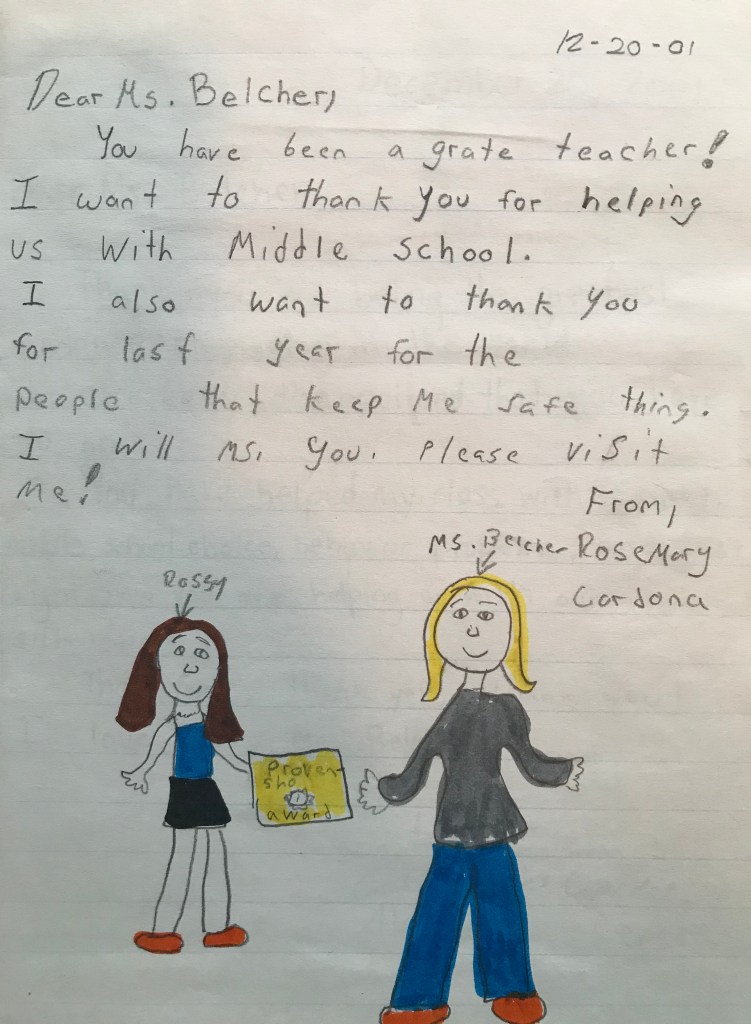 12-20-01
Dear Ms. Belcher,
You have been a grate teacher!
I want to thank you for helping
us with Middle School.
I also want to thank you
for last year for the
people that keep me safe thing.
I will ms. you. Please visit
me!
From,
Ms. Belcher
RoseMary
Cardona
Rossy
Proven-
sho
award